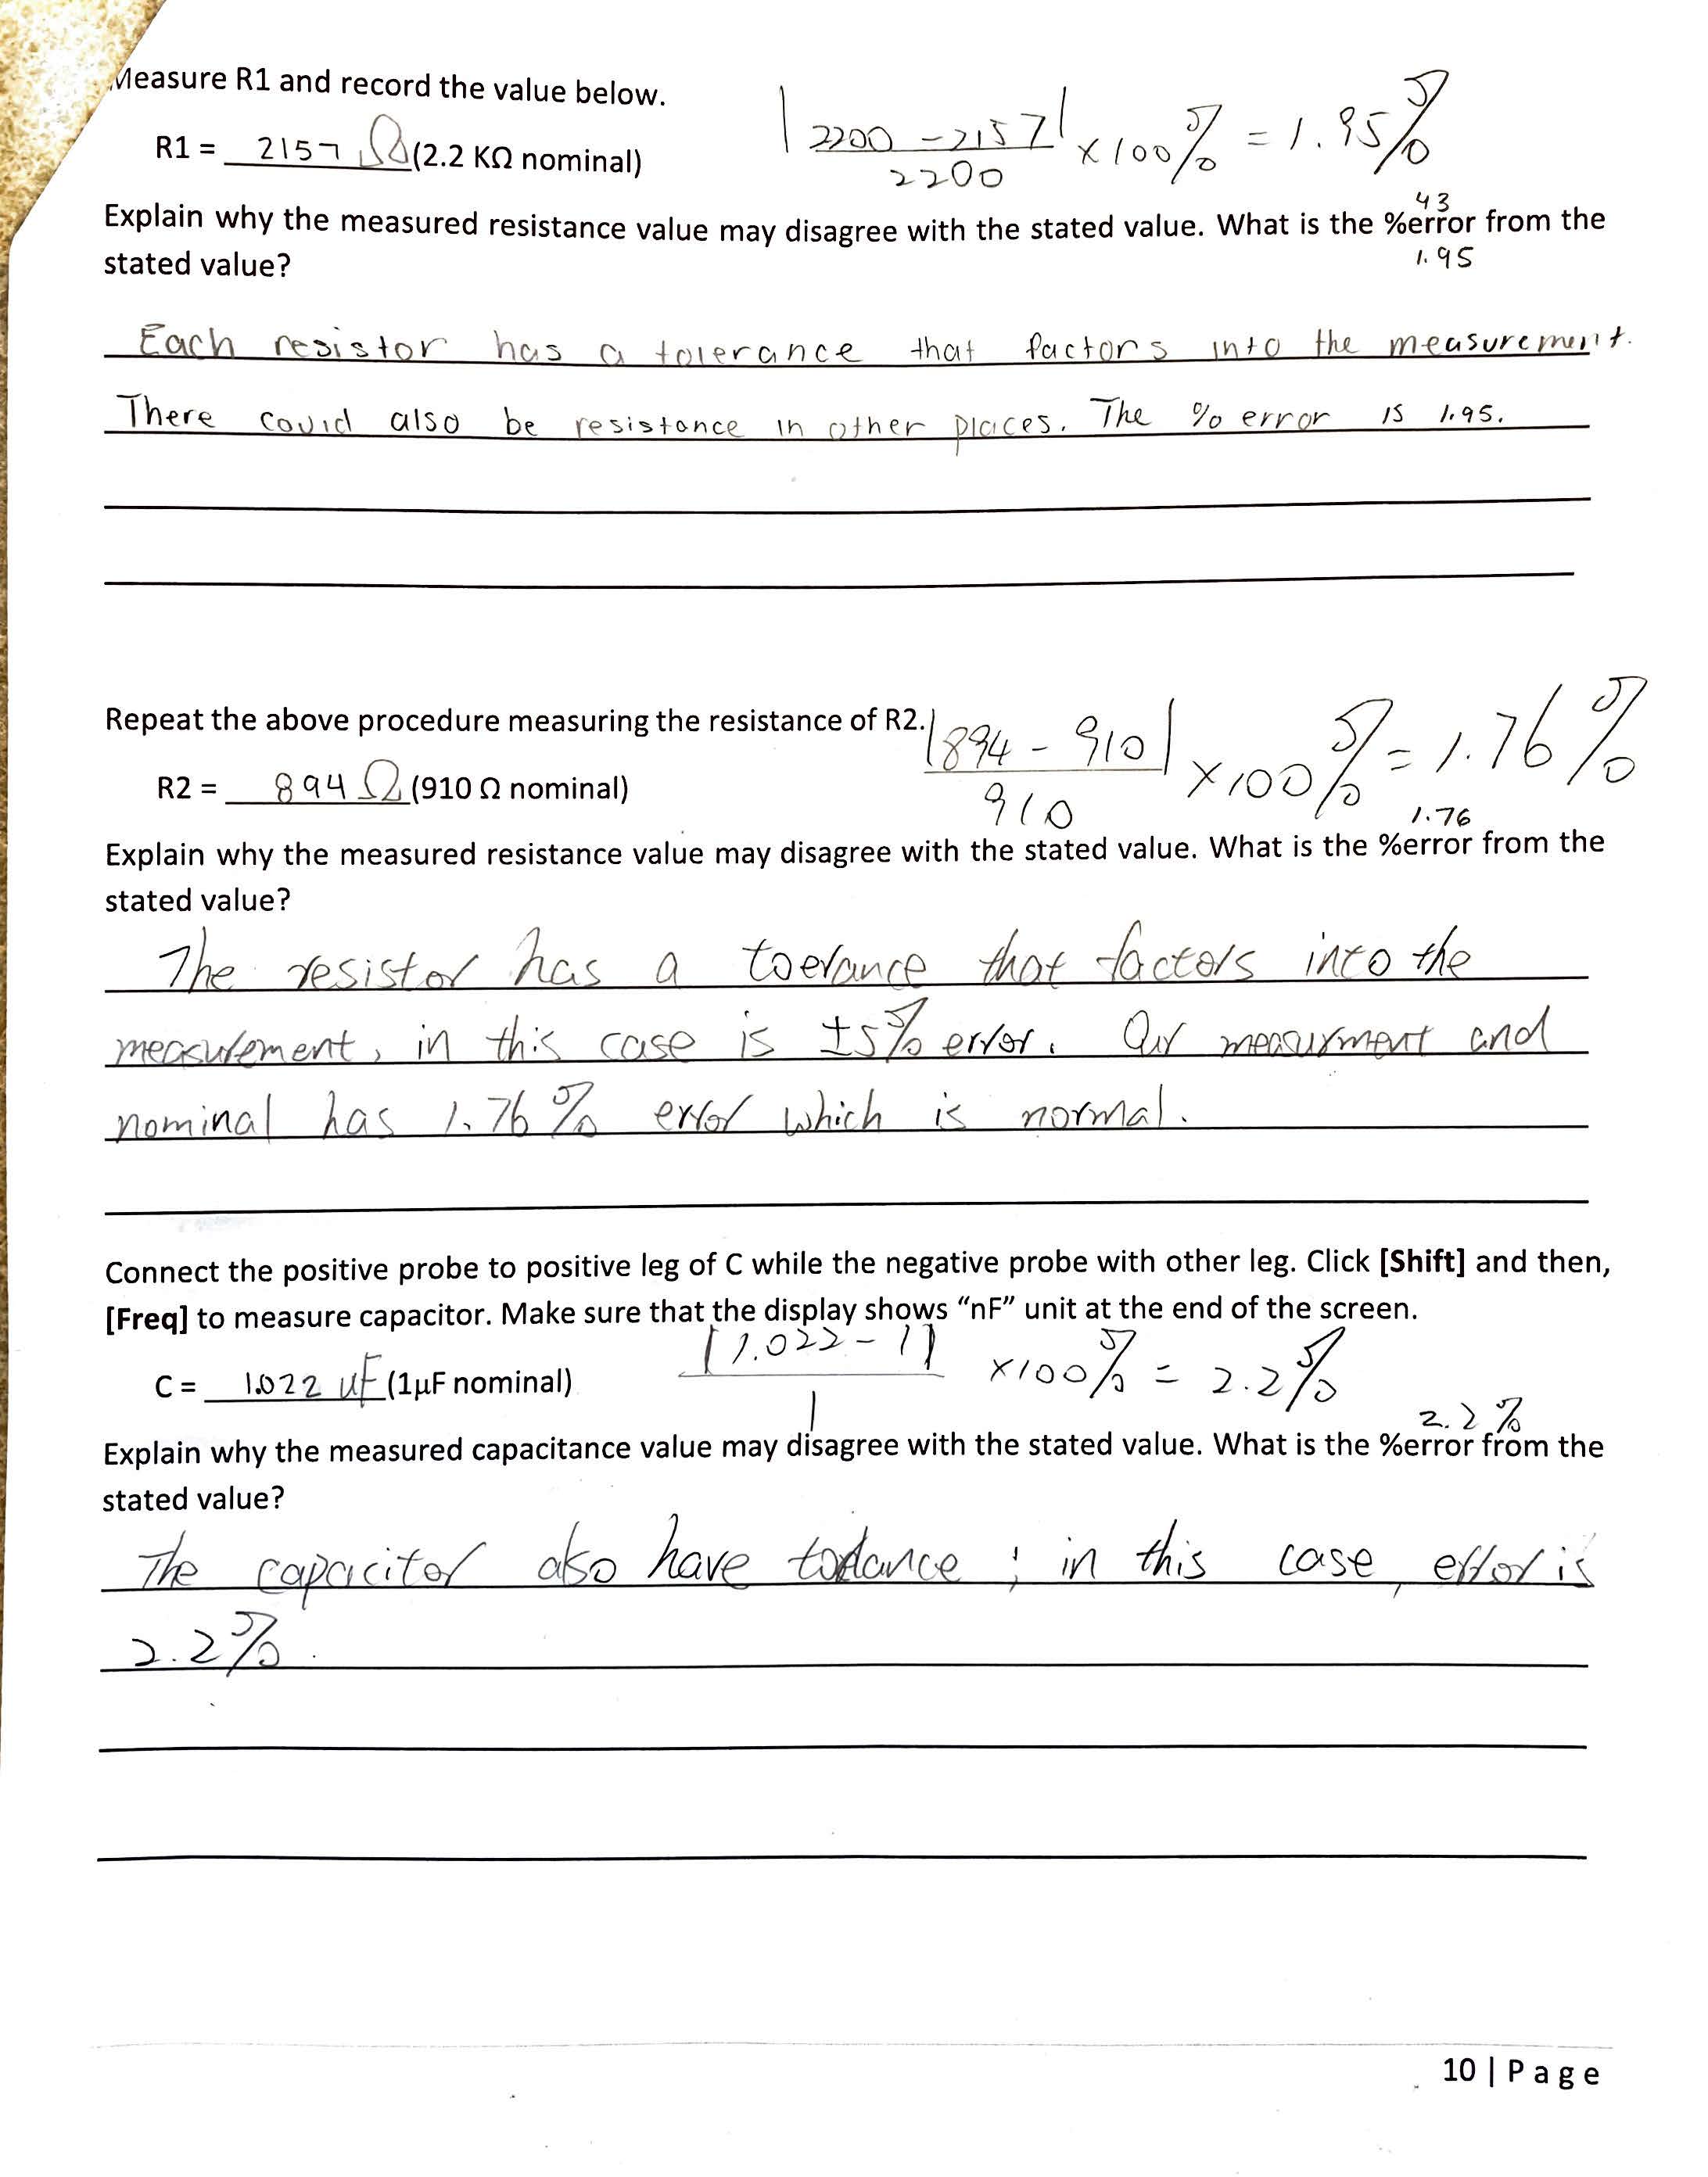 Measure R1 and record the value below.
|2200 - 2157| / 2200 × 100% = 1.95%
R1 = 2157 Ω (2.2 KΩ nominal)
43
Explain why the measured resistance value may disagree with the stated value. What is the %error from the
stated value?
1.95
Each resistor has a tolerance that factors into the measurement.
There could also be resistance in other places. The % error is 1.95.
Repeat the above procedure measuring the resistance of R2.
|894 - 910| / 910 × 100% = 1.76%
R2 = 894 Ω (910 Ω nominal)
1.76
Explain why the measured resistance value may disagree with the stated value. What is the %error from the
stated value?
The resistor has a toerance that factors into the
measurement, in this case is ±5% error. Our measurment and
nominal has 1.76% error which is normal.
Connect the positive probe to positive leg of C while the negative probe with other leg. Click [Shift] and then,
[Freq] to measure capacitor. Make sure that the display shows “nF” unit at the end of the screen.
|1.022 - 1| / 1 × 100% = 2.2%
C = 1.022 uF (1µF nominal)
2.2%
Explain why the measured capacitance value may disagree with the stated value. What is the %error from the
stated value?
The capacitor also have tolerance ; in this case, error is
2.2%.
10 | Page